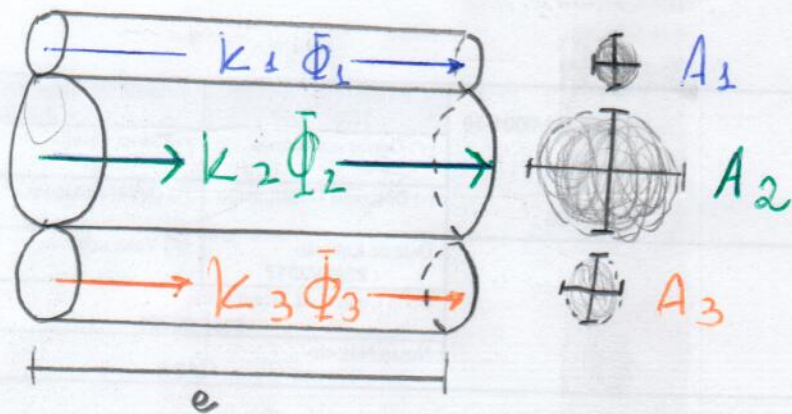 K1 Φ1 A1
K2 Φ2 A2
K3 Φ3 A3
e